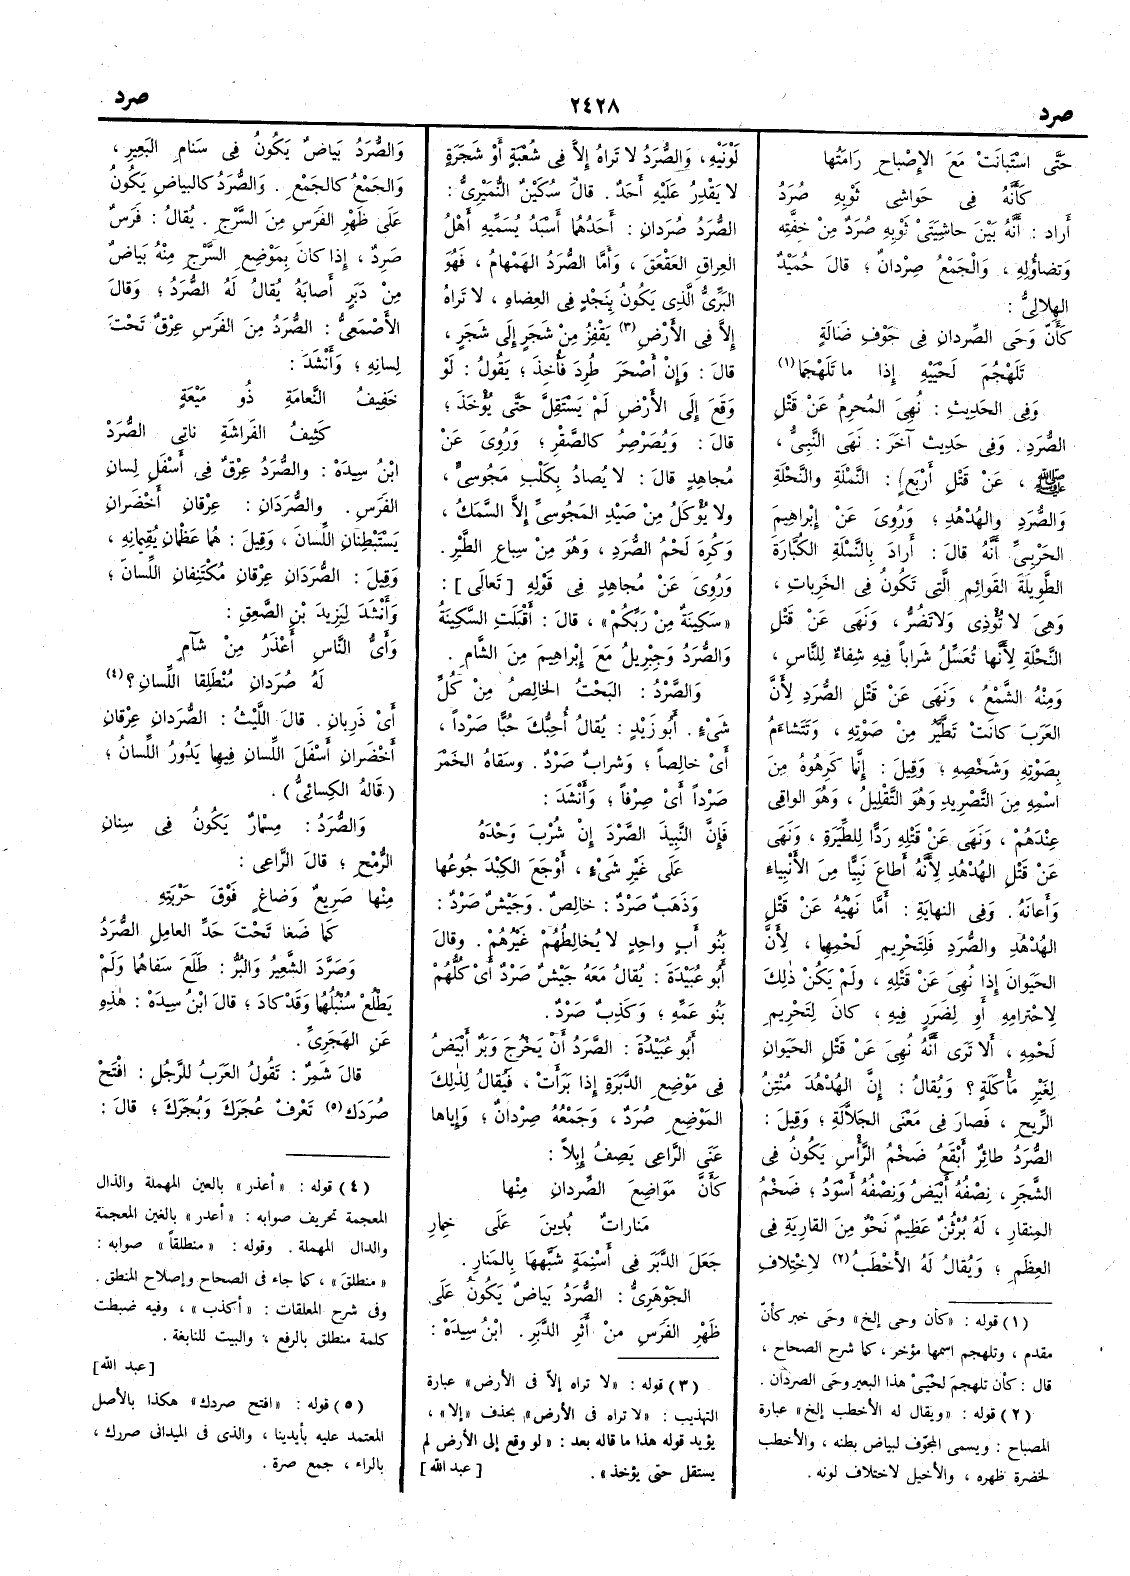 صرد
٢٤٢٨
صرد
حَتَّى اسْتَبانَتْ مَعَ الإِصْباحِ رَامَتُها
كَأَنَّهُ فِى حَواشِى ثَوْبِهِ صُرَدُ
أَراد : أَنَّهُ بَيْنَ حاشِيَتَىْ ثَوْبِهِ صُرَدٌ مِنْ خِفَّتِهِ
وَتَضاؤُلِهِ ، وَالْجَمْعُ صِرْدانٌ ؛ قالَ حُمَيْدٌ
الْهِلالِىُّ :
كَأَنَّ وَحَى الصِّردانِ فِى جَوْفِ ضَالَةٍ
تَلَهْجُمَ لَحْيَيْهِ إِذا ما تَلَهْجَمَا (١)
وَفِى الحَدِيثِ : نُهِىَ المُحْرِمُ عَنْ قَتْلِ
الصُّرَدِ. وَفِى حَدِيث آخَرَ : نَهَى النَّبِىُّ ،
ﷺ ، عَنْ قَتْلِ أَرْبَعٍ : النَّمْلَةِ والنَّحْلَةِ
وَالصُّرَدِ والْهُدْهُدِ ؛ وَرُوِىَ عَنْ إِبْراهِيمَ
الْحَرْبِىِّ أَنَّهُ قالَ : أَرادَ بِالنَّمْلَةِ الكُبَّارَةَ
الطَّوِيلَةَ القَوائِمِ الَّتِى تَكُونُ فِى الخَرِباتِ ،
وَهِىَ لا تُؤْذِى وَلاتَضُرُّ ، وَنَهَى عَنْ قَتْلِ
النَّحْلَةِ لِأَنَّها تُعَسِّلُ شَراباً فِيهِ شِفاءٌ لِلنَّاسِ ،
وَمِنْهُ الشَّمْعُ ، وَنَهَى عَنْ قَتْلِ الصُّرَدِ لِأَنَّ
العَرَبَ كانَتْ تَطَيَّرُ مِنْ صَوْتِهِ ، وَتَتَشاءَمُ
بِصَوْتِهِ وَشَخْصِهِ ؛ وَقِيلَ : إِنَّما كَرِهُوهُ مِنَ
اسْمِهِ مِنَ التَّصْرِيدِ وَهُوَ التَّقْلِيلُ ، وَهُوَ الواقِى
عِنْدَهُمْ ، وَنَهَى عَنْ قَتْلِهِ رَدًّا لِلطِّيَرَةِ ، وَنَهَى
عَنْ قَتْلِ الهُدْهُدِ لِأَنَّهُ أَطاعَ نَبِيًّا مِنَ الأَنْبِياءِ
وَأَعانَهُ. وَفِى النِّهايَةِ : أَمَّا نَهْيُهُ عَنْ قَتْلِ
الهُدْهُدِ والصُّرَدِ فَلِتَحْرِيمِ لَحْمِها ، لِأَنَّ
الحَيَوانَ إِذا نُهِىَ عَنْ قَتْلِهِ ، وَلَمْ يَكُنْ ذٰلِكَ
لاحْتِرامِهِ أَو لِضَرَرٍ فِيهِ ، كانَ لِتَحْرِيمِ
لَحْمِهِ ، أَلا تَرَى أَنَّهُ نُهِىَ عَنْ قَتْلِ الحَيَوانِ
لِغَيْرِ مَأْكَلَةٍ؟ وَيُقالُ : إِنَّ الهُدْهُدَ مُنْتِنُ
الرِّيحِ ، فَصارَ فِى مَعْنَى الجَلاَّلَةِ ؛ وَقِيلَ :
الصُّرَدُ طائِرٌ أَبْقَعُ ضَخْمُ الرَّأْسِ يَكُونُ فِى
الشَّجَرِ ، نِصْفُهُ أَبْيَضُ وَنِصْفُهُ أَسْوَدُ ؛ ضَخْمُ
المِنقارِ ، لَهُ بُرْثُنٌ عَظِيمٌ نَحْوٌ مِنَ القارِيَةِ فِى
العِظَمِ ؛ وَيُقالُ لَهُ الأَخْطَبُ (٢) لاِخْتِلافِ
(١) قوله : «كأن وحى إلخ» وحَى خبر كأنّ
مقدم ، وتلهجم اسمها مؤخر ، كما شرح الصحاح ،
قال : كأن تلهجم لحْيَىْ هذا البعير وحَى الصردان.
(٢) قوله : «ويقال له الأخطب إلخ» عبارة
المصباح : ويسمى المجوّف لبياض بطنه ، والأخطب
لخضرة ظهره ، والأخيل لاختلاف لونه .
لَوْنَيْهِ ، وَالصُّرَدُ لا تَراهُ إِلاَّ فِى شُعْبَةٍ أَوْ شَجَرَةٍ
لا يَقْدِرُ عَلَيْهِ أَحَدٌ. قالَ سُكَيْنٌ النُّمَيْرِىُّ :
الصُّرَدُ صُرَدانِ : أَحَدُهُما أَسْبَدُ يُسَمِّيهِ أَهْلُ
العِراقِ العَقْعَقَ ، وَأَمَّا الصُّرَدُ الهَمْهامُ ، فَهُوَ
البَرِّىُّ الَّذِى يَكُونُ بِنَجْدٍ فِى العِضاهِ ، لا تَراهُ
إِلاَّ فِى الأَرْضِ (٣) يَقْفِزُ مِنْ شَجَرٍ إِلَى شَجَرٍ ،
قالَ : وَإِنْ أَصْحَرَ طُرِدَ فَأُخِذَ ؛ يَقُولُ : لَوْ
وَقَعَ إِلَى الأَرْضِ لَمْ يَسْتَقِلَّ حَتَّى يُؤْخَذَ ؛
قالَ : وَيُصَرْصِرُ كالصَّقْرِ ؛ وَرُوِىَ عَنْ
مُجاهِدٍ قالَ : لا يُصادُ بِكَلْبِ مَجُوسِىٍّ ،
ولا يُؤْكَلُ مِنْ صَيْدِ المَجُوسِىِّ إِلاَّ السَّمَكُ ،
وَكَرِهَ لَحْمَ الصُّرَدِ ، وَهُوَ مِنْ سِباعِ الطَّيْرِ.
وَرُوِىَ عَنْ مُجاهِدٍ فِى قَوْلِهِ [تَعالَى] :
«سَكِينَةٌ مِنْ رَبِّكُمْ» ، قالَ : أَقْبَلَتِ السَّكِينَةُ
وَالصُّرَدُ وَجِبْرِيلُ مَعَ إِبْراهِيمَ مِنَ الشَّامِ .
وَالصَّرْدُ : البَحْتُ الخالِصُ مِنْ كُلِّ
شَىْءٍ. أَبُو زَيْدٍ : يُقالُ أُحِبُّكَ حُبًّا صَرْداً ،
أَىْ خالِصاً ؛ وَشَرابٌ صَرْدٌ. وسَقاهُ الخَمْرَ
صَرْداً أَىْ صِرْفاً ؛ وَأَنْشَدَ :
فَإِنَّ النَّبِيذَ الصَّرْدَ إِنْ شُرْبَ وَحْدَهُ
عَلَى غَيْرِ شَىْءٍ ، أَوْجَعَ الكِبْدَ جُوعُها
وَذَهَبٌ صَرْدٌ : خالِصٌ. وَجَيْشٌ صَرْدٌ :
بَنُو أَبٍ واحِدٍ لا يُخالِطُهُمْ غَيْرُهُمْ. وَقالَ
أَبُو عُبَيْدَةَ : يُقالُ مَعَهُ جَيْشٌ صَرْدٌ أَىْ كُلُّهُمْ
بَنُو عَمِّهِ ؛ وَكَذِبٌ صَرْدٌ.
أَبُو عُبَيْدَةَ : الصُّرَدُ أَنْ يَخْرُجَ وَبَرٌ أَبْيَضُ
فِى مَوْضِعِ الدَّبَرَةِ إِذا بَرَأَتْ ، فَيُقالُ لِذٰلِكَ
المَوْضِعِ صُرَدٌ ، وَجَمْعُهُ صِرْدانٌ ؛ وَإِياها
عَنَى الرَّاعِى يَصِفُ إِبِلاً :
كَأَنَّ مَوَاضِعَ الصِّردانِ مِنْها
مَناراتٌ بُدِينَ عَلَى خِمارِ
جَعَلَ الدَّبَرَ فِى أَسْنِمَةٍ شَبَّهَها بِالمَنارِ .
الجَوْهَرِىُّ : الصُّرَدُ بَياضٌ يَكُونُ عَلَى
ظَهْرِ الفَرَسِ مِنْ أَثَرِ الدَّبَرِ. ابْنُ سِيدَهْ :
(٣) قوله : «لا تراه إلاّ فى الأرض» عبارة
التهذيب : «لا تراه فى الأرض» بحذف «إلا» ،
يؤيد قوله هذا ما قاله بعد : «لو وقع إلى الأرض لم
يستقل حتى يؤخذ» . [عبد الله]
وَالصُّرَدُ بَياضٌ يَكُونُ فِى سَنامِ البَعِيرِ ،
وَالجَمْعُ كالجَمْعِ. وَالصُّرَدُ كالبياضِ يَكُونُ
عَلَى ظَهْرِ الفَرَسِ مِنَ السَّرْجِ. يُقالُ : فَرَسٌ
صَرِدٌ ، إِذا كانَ بِمَوْضِعِ السَّرْجِ مِنْهُ بَياضٌ
مِنْ دَبَرٍ أَصابَهُ يُقالُ لَهُ الصُّرَدُ ؛ وَقالَ
الأَصْمَعِىُّ : الصُّرَدُ مِنَ الفَرَسِ عِرْقٌ تَحْتَ
لِسانِهِ ؛ وَأَنْشَدَ :
خَفِيفُ النَّعامَةِ ذُو مَيْعَةٍ
كَثِيفُ الفَراشَةِ ناتِى الصُّرَدْ
ابْنُ سِيدَهْ : والصُّرَدُ عِرْقٌ فِى أَسْفَلِ لِسانِ
الفَرَسِ. والصُّرَدَانِ : عِرْقانِ أَخْضَرانِ
يَسْتَبْطِنانِ اللِّسانَ ، وَقِيلَ : هُما عَظْمانِ يُقِيمانِهِ ،
وَقِيلَ : الصُّرَدَانِ عِرْقانِ مُكْتَنِفانِ اللِّسانَ ؛
وَأَنْشَدَ لِيَزِيدَ بْنِ الصَّعِقِ :
وَأَىُّ النَّاسِ أَعْذَرُ مِنْ شَآمٍ
لَهُ صُرَدانِ مُنْطَلِقا اللِّسانِ؟ (٤)
أَىْ ذَرِبانِ. قالَ اللَّيْثُ : الصُّرَدانِ عِرْقانِ
أَخْضَرانِ أَسْفَلَ اللِّسانِ فِيهِما يَدُورُ اللِّسانُ ؛
(قالَهُ الكِسائِىُّ) .
وَالصُّرَدُ : مِسْمارٌ يَكُونُ فِى سِنانِ
الرُّمْحِ ؛ قالَ الرَّاعِى :
مِنْها صَرِيعٌ وَضاغٍ فَوْقَ حَرْبَتِهِ
كَما ضَغا تَحْتَ حَدِّ العامِلِ الصُّرَدُ
وَصَرَّدَ الشَّعِيرُ وَالبُرُّ : طَلَعَ سَفاهُما وَلَمْ
يَطْلُعْ سُنْبُلُهُما وَقَدْ كادَ ؛ قالَ ابْنُ سِيدَهْ : هٰذِهِ
عَنِ الهَجَرِىِّ .
قالَ شَمِرٌ : تَقُولُ العَرَبُ لِلرَّجُلِ : افْتَحْ
صُرَدَكَ (٥) تَعْرِفْ عُجَرَكَ وَبُجَرَكَ ؛ قالَ :
(٤) قوله : «أعذر» بالعين المهملة والذال
المعجمة تحريف صوابه : «أغدر» بالغين المعجمة
والدال المهملة. وقوله : «منطلقاً» صوابه :
«منطلق» ، كما جاء فى الصحاح وإصلاح المنطق.
وفى شرح المعلقات : «أكذب» ، وفيه ضبطت
كلمة منطلق بالرفع ؛ والبيت للنابغة .
[عبد الله]
(٥) قوله : «افتح صردك» هكذا بالأصل
المعتمد عليه بأيدينا ، والذى فى الميدانى صررك ،
بالراء ، جمع صرة .